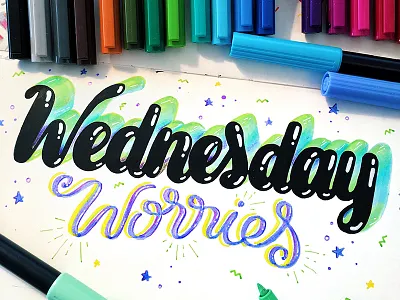 Wednesday
Worries